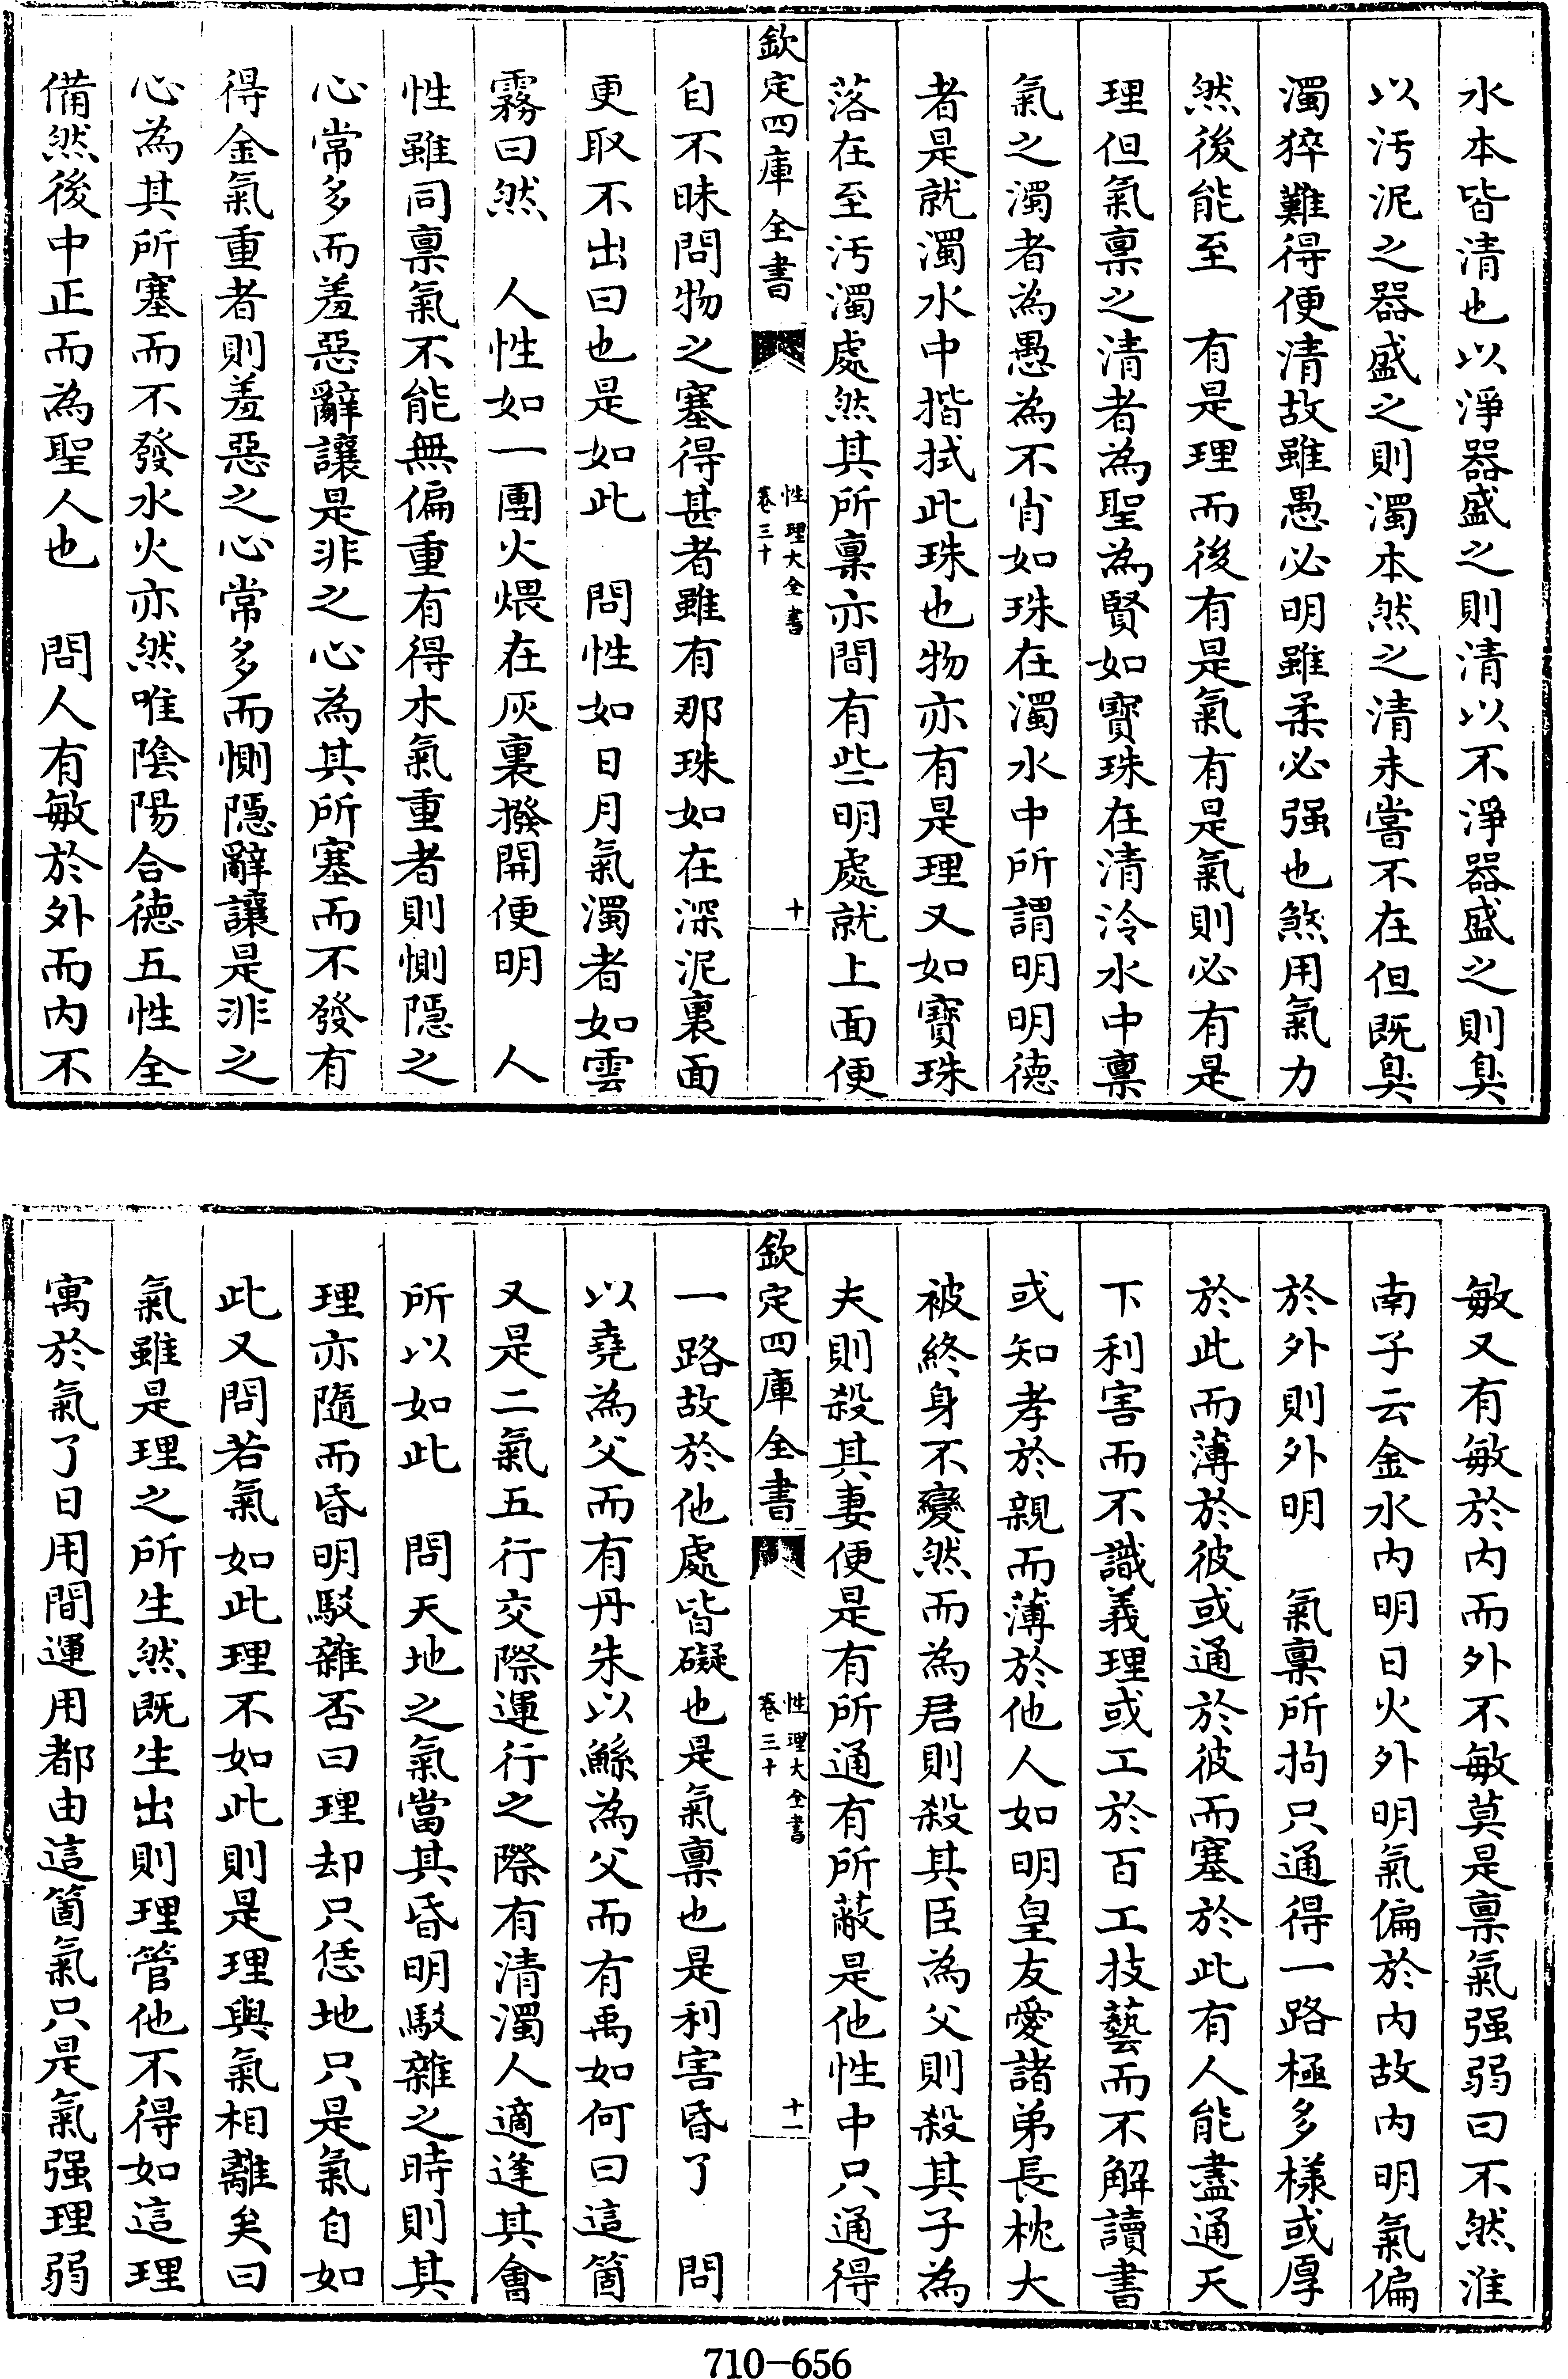 水本皆清也以淨器盛之則清以不淨器盛之則臭
以汚泥之器盛之則濁本然之清未嘗不在但既臭
濁猝難得便清故雖愚必明雖柔必强也煞用氣力
然後能至　有是理而後有是氣有是氣則必有是
理但氣稟之清者為聖為賢如寳珠在清泠水中稟
氣之濁者為愚為不肖如珠在濁水中所謂明明德
者是就濁水中揩拭此珠也物亦有是理又如寳珠
落在至汚濁處然其所稟亦間有些明處就上面便
欽定四庫全書
性理大全書
卷三十
十
自不昧問物之塞得甚者雖有那珠如在深泥裏面
更取不出曰也是如此　問性如日月氣濁者如雲
霧曰然　人性如一團火煨在灰裏撥開便明　人
性雖同稟氣不能無偏重有得木氣重者則惻隠之
心常多而羞惡辭讓是非之心為其所塞而不發有
得金氣重者則羞惡之心常多而惻隠辭讓是非之
心為其所塞而不發水火亦然唯陰陽合徳五性全
備然後中正而為聖人也　問人有敏於外而内不
敏又有敏於内而外不敏莫是稟氣强弱曰不然淮
南子云金水内明日火外明氣偏於内故内明氣偏
於外則外明　氣稟所拘只通得一路極多様或厚
於此而薄於彼或通於彼而塞於此有人能盡通天
下利害而不識義理或工於百工技藝而不解讀書
或知孝於親而薄於他人如明皇友愛諸弟長枕大
被終身不變然而為君則殺其臣為父則殺其子為
夫則殺其妻便是有所通有所蔽是他性中只通得
欽定四庫全書
性理大全書
卷三十
十一
一路故於他處皆礙也是氣稟也是利害昏了　問
以堯為父而有丹朱以鯀為父而有禹如何曰這箇
又是二氣五行交際運行之際有清濁人適逢其會
所以如此　問天地之氣當其昏明駁雜之時則其
理亦隨而昏明駁雜否曰理却只恁地只是氣自如
此又問若氣如此理不如此則是理與氣相離矣曰
氣雖是理之所生然既生出則理管他不得如這理
寓於氣了日用間運用都由這箇氣只是氣强理弱
710-656